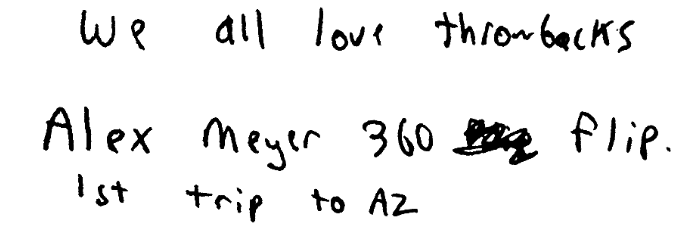 We all love throwbacks
Alex Meyer 360 flip.
1st trip to AZ